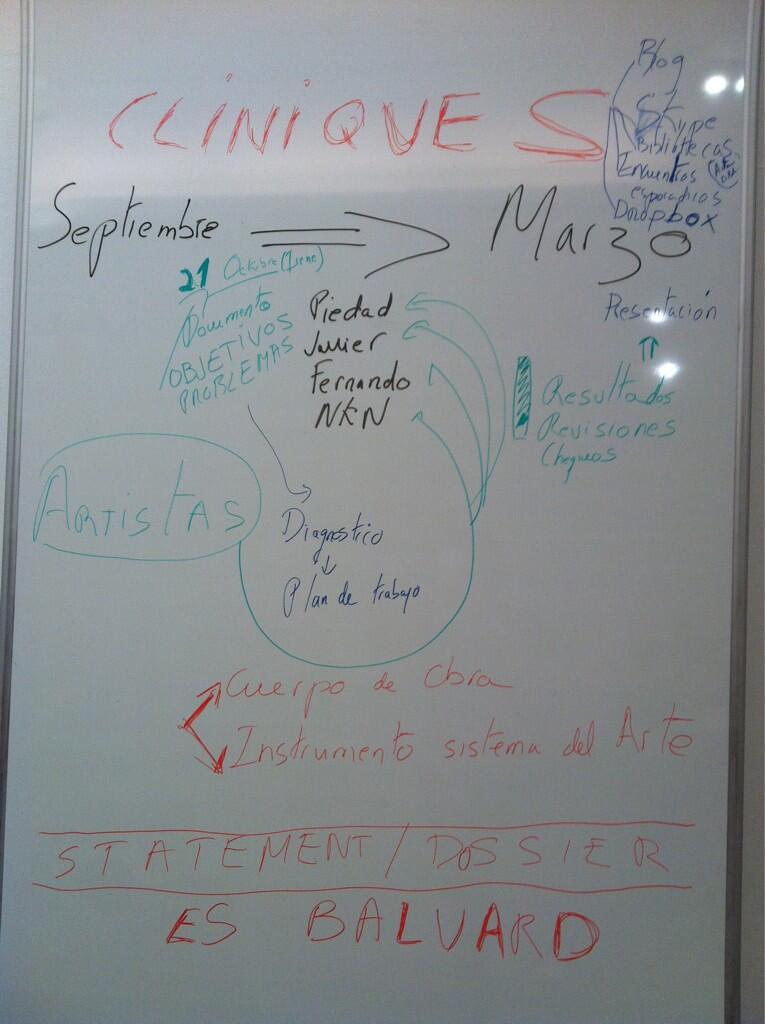 CLINIQUES
Blog
Skype
Bibliotecas
Encuentros
esporadicos
Dropbox
Septiembre
Marzo
21 Octubre (Irene)
Documento
OBJETIVOS
PROBLEMAS
Piedad
Javier
Fernando
NKN
Presentación
Resultados
Revisiones
Chequeos
ARTISTAS
Diagnostico
Plan de trabajo
Cuerpo de obra
Instrumento sistema del Arte
STATEMENT / DOSSIER
ES BALUARD